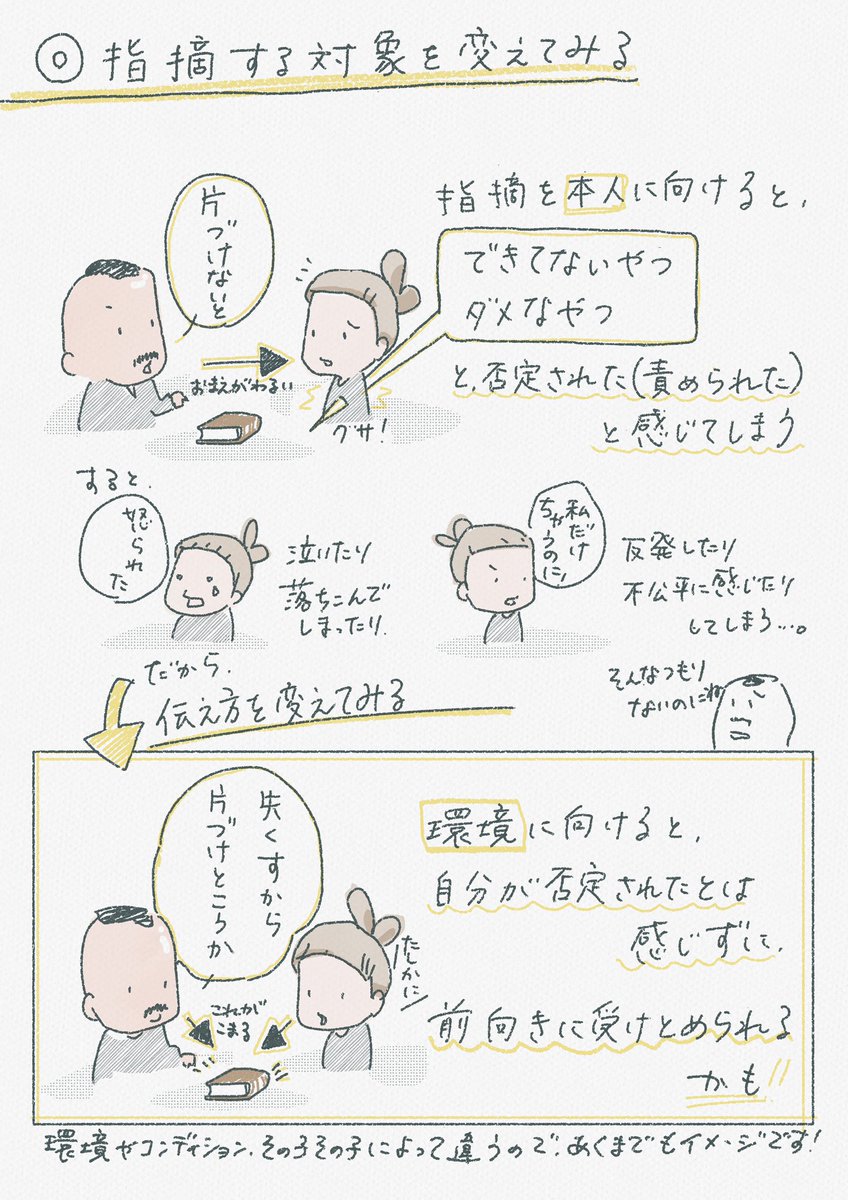 ◎指摘する対象を変えてみる
片づけないと
おまえがわるい
グサ!
指摘を本人に向けると、
できてないやつ
ダメなやつ
と、否定された(責められた)
と感じてしまう
すると、
怒られた
泣いたり
落ちこんで
しまったり、
私だけ
ちゃうのに!
反発したり
不公平に感じたり
してしまう…。
そんなつもり
ないのにね
だから、
伝え方を変えてみる
失くすから
片づけとこうか
これが
こまる
たしかに
環境に向けると、
自分が否定されたとは
感じずに、
前向きに受けとめられる
かも!!
環境やコンディション、その子その子によって違うので、あくまでもイメージです!